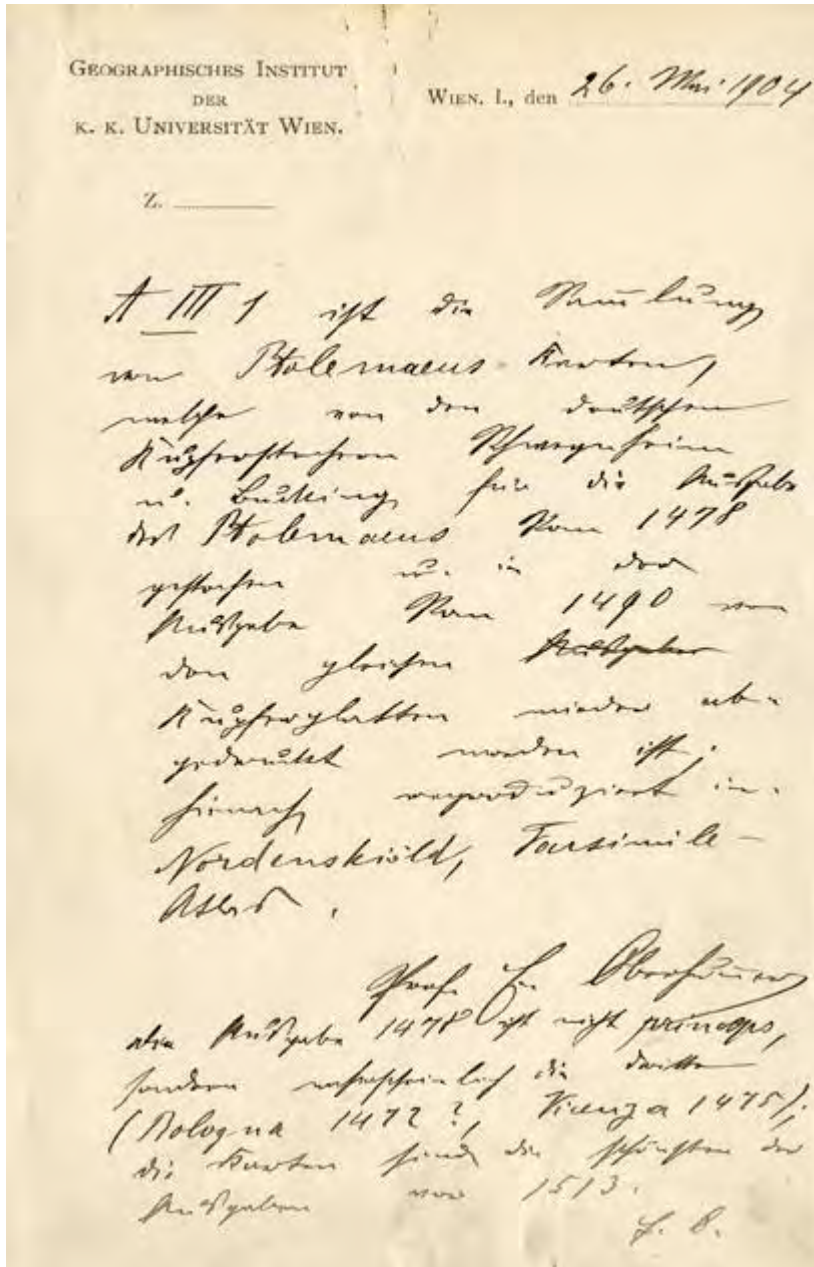 GEOGRAPHISCHES INSTITUT
DER
K. K. UNIVERSITÄT WIEN.
WIEN. I., den 26. Mai 1904
Z.
A III 1 ist die Sammlung
von Ptolemaeus-Karten,
welche von den deutschen
Kupferstechern Schweynheim
u. Bucking für die Ausgabe
des Ptolemaeus Rom 1478
gestochen u. in der
Ausgabe Rom 1490 von
den gleichen Ausgaben
Kupferplatten wieder ab-
gedruckt worden ist;
hienach reproduziert in:
Nordenskiöld, Facsimile-
Atlas.
Prof. E. Oberhummer
Die Ausgabe 1478 ist nicht princeps,
sondern wahrscheinlich die dritte
(Bologna 1472?, Vicenza 1475);
die Karten sind die schönsten der
Ausgaben vor 1513.
E. O.